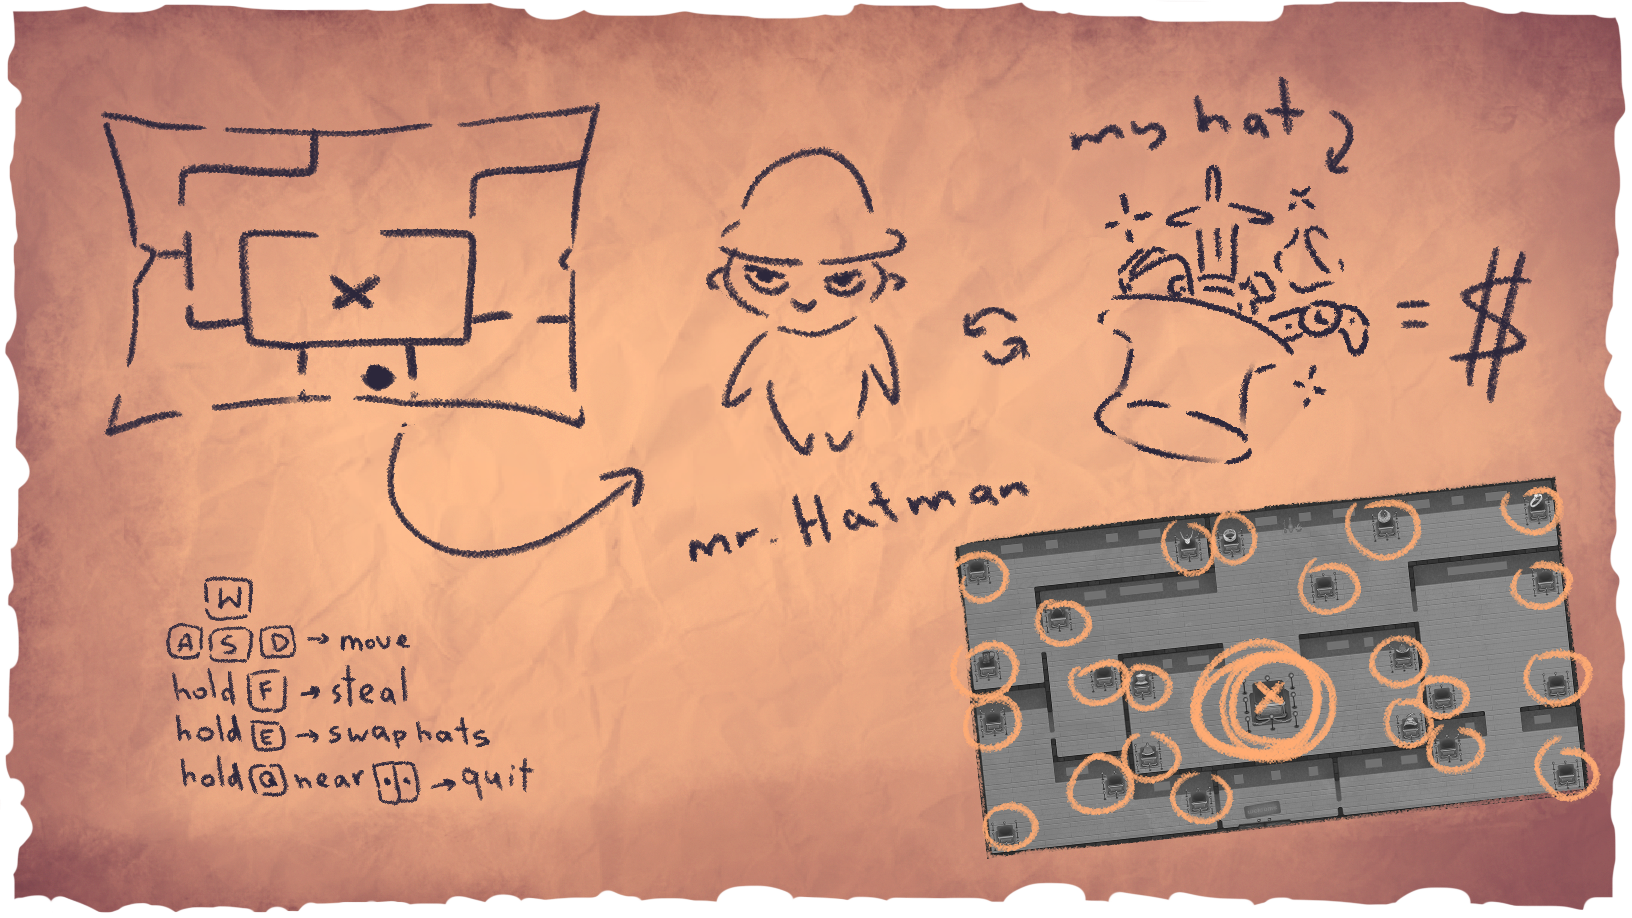 my hat
= $
mr. Hatman
W
A S D → move
hold F → steal
hold E → swap hats
hold Q near → quit